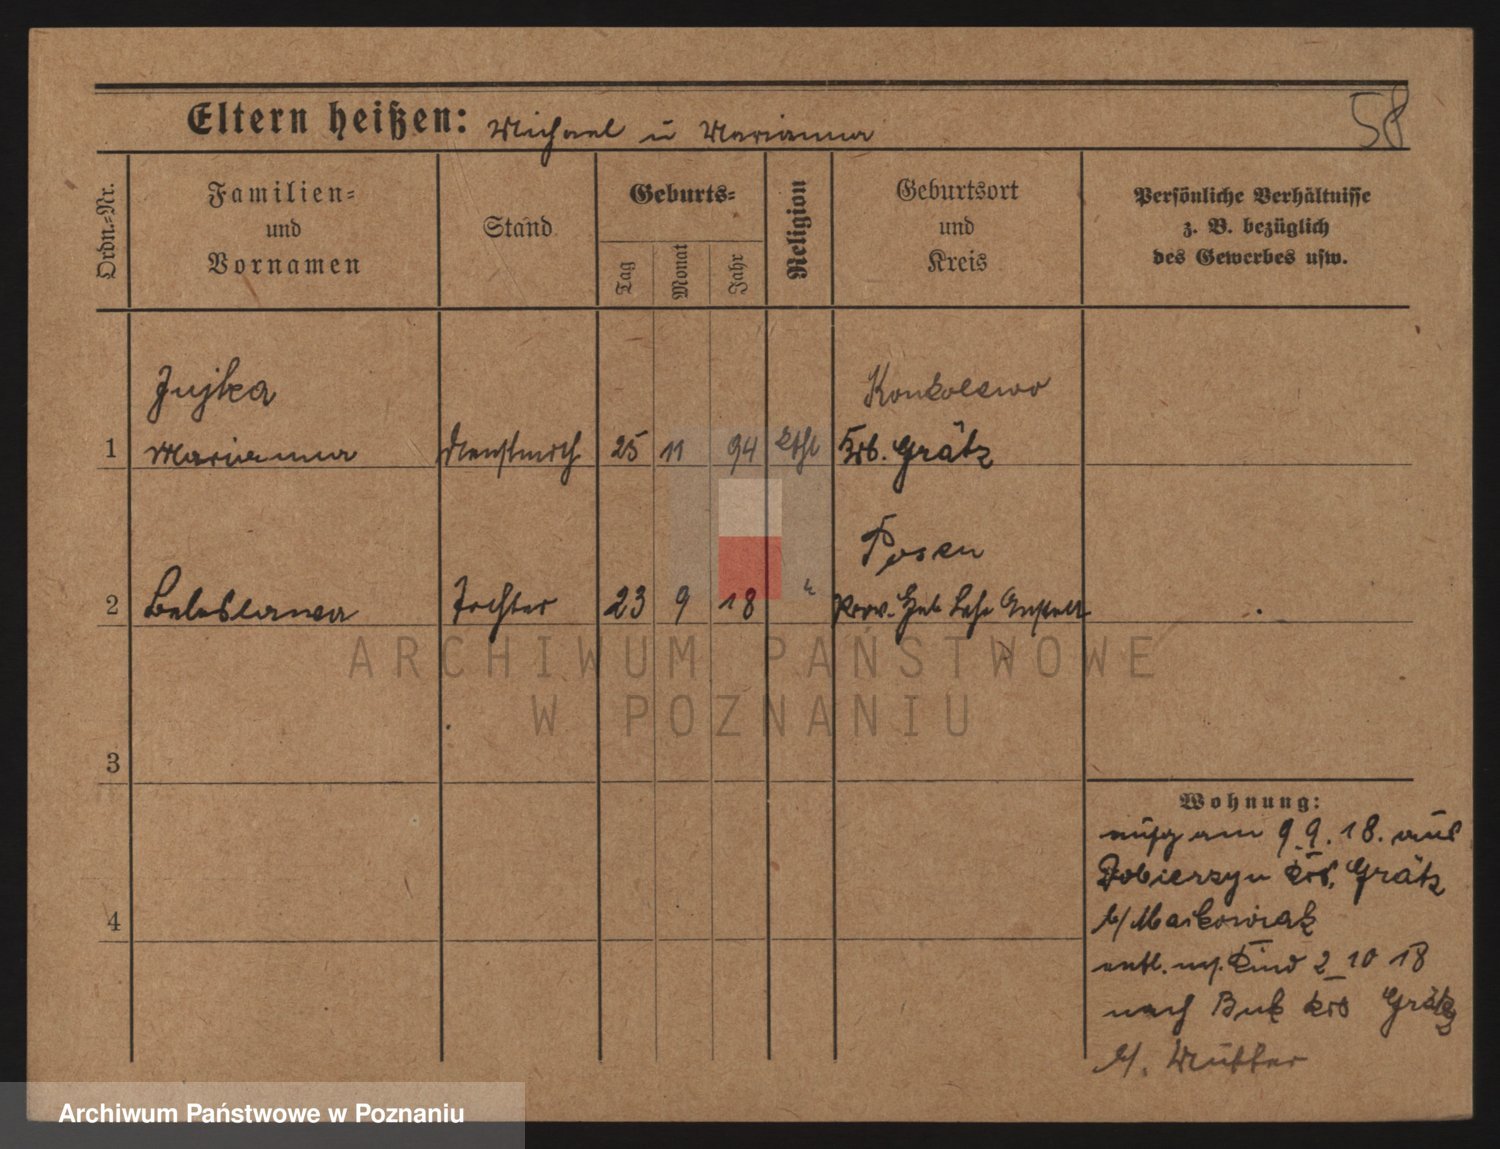 Eltern heißen: Michael u Marianna
58
Ordn.-Nr.
Familien-
und
Vornamen
Stand
Geburts-
Tag
Monat
Jahr
Religion
Geburtsort
und
Kreis
Persönliche Verhältnisse
z. B. bezüglich
des Gewerbes usw.
Konkolewo
1 Marianna 25 11 94 kthl Krs. Grätz
Posen
2 Boleslawa Tochter 23 9 18 " Prov. Heb Lehr Anstalt
3
4
Wohnung:
am 9.9.18. aus
Dobierzyn Krs. Grätz
b/ Maikowiak
entl. m. Kind 2 10 18
nach Buk Krs Grätz
b/. Mutter
ARCHIWUM PAŃSTWOWE
W POZNANIU
Archiwum Państwowe w Poznaniu